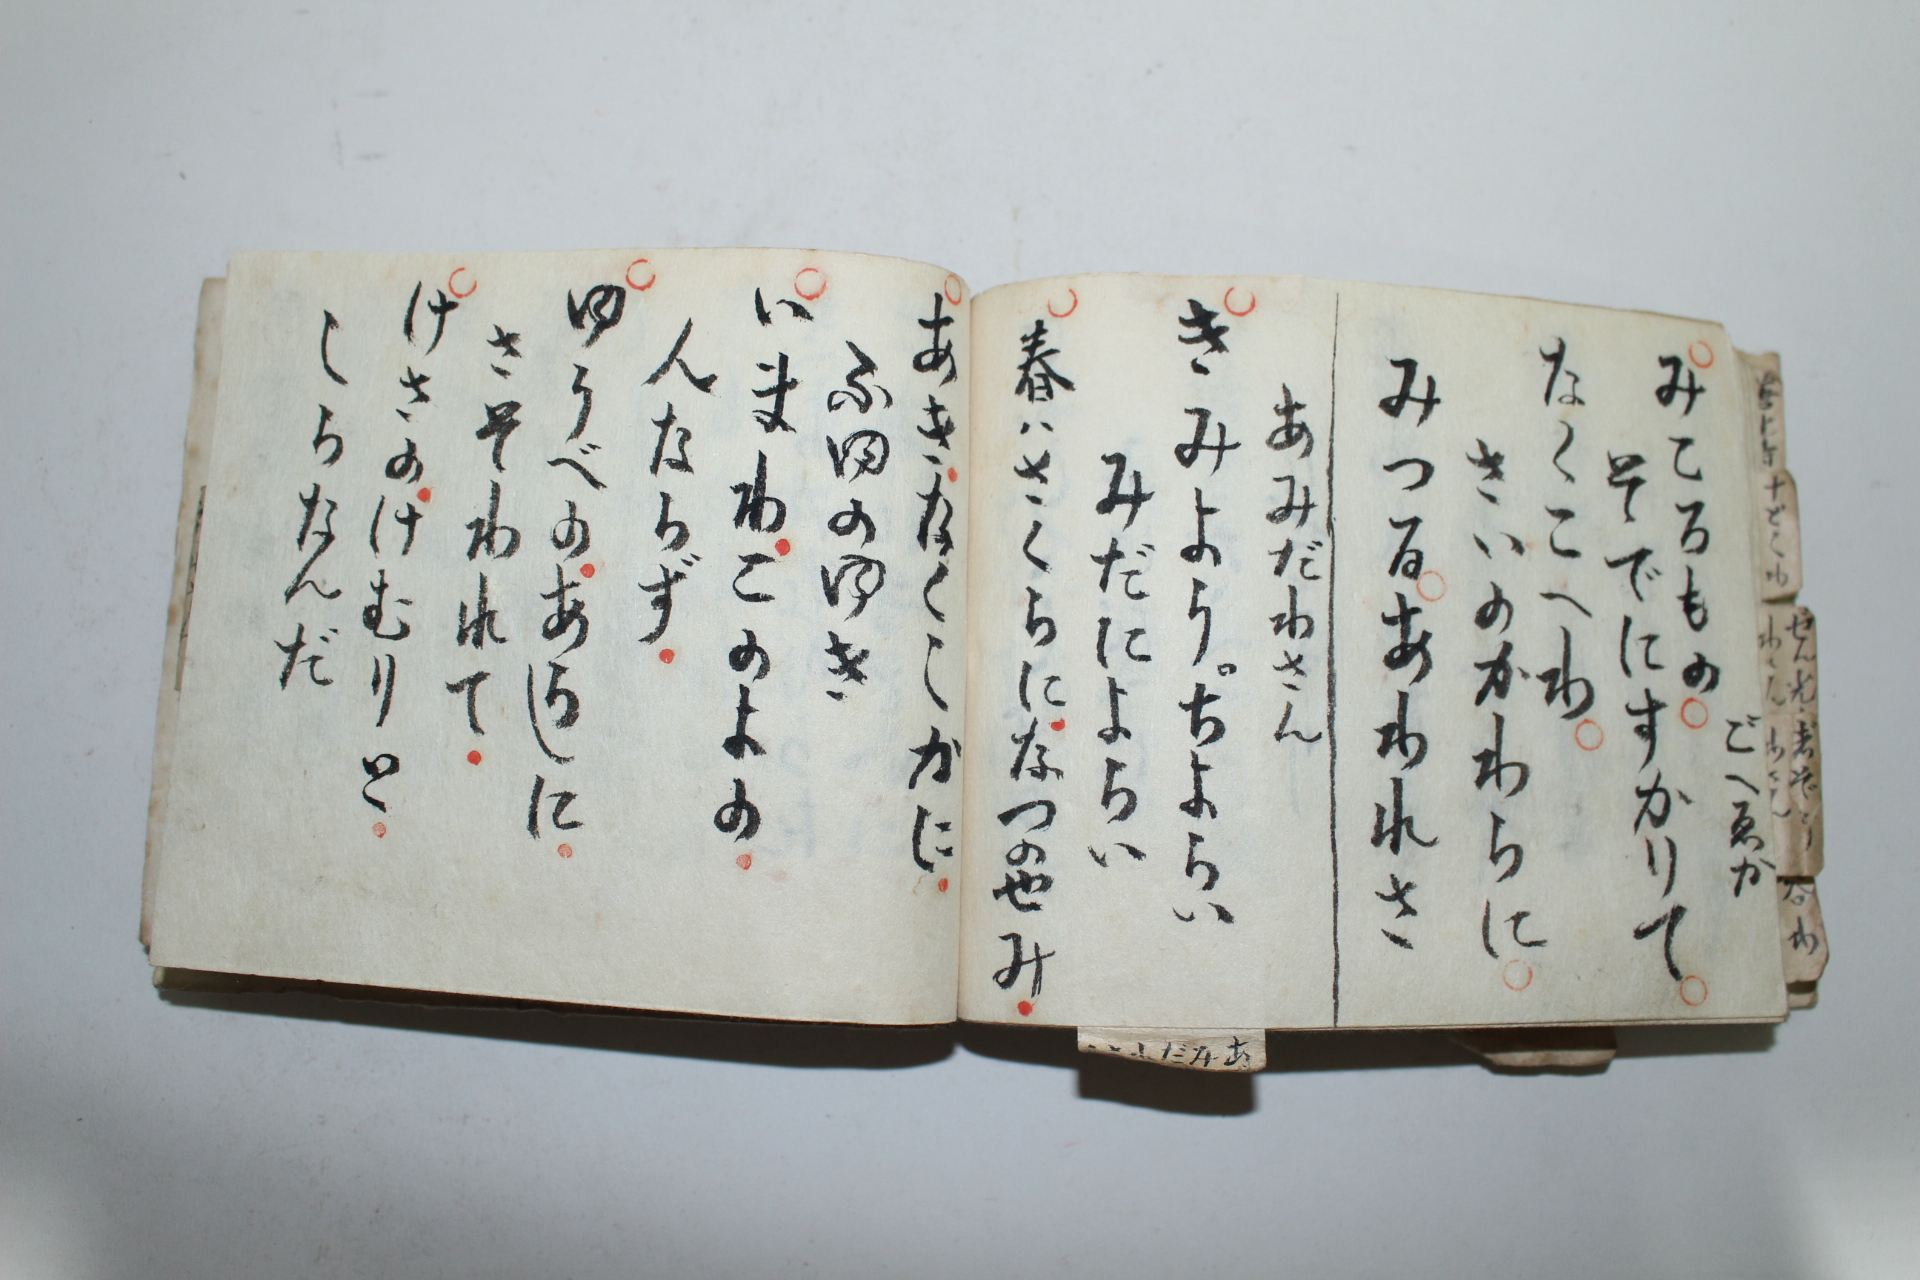 みこるもの
ごへゑか
そでにすがりて
なくこへわ
さいのかわらに
みつるあわれさ
あみだわさん
きみようちよらい
みだによらい
春ハさくらになつのせみ
あきなくしかに
ふゆのゆき
いまわこのよの
人ならず
ゆうべのあらしに
さそわれて
けさのけむりと
しらなんだ